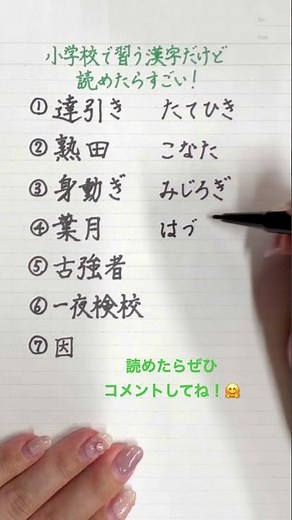 小学校で習う漢字だけど
読めたらすごい!
①達引き たてひき
②熟田 こなた
③身動ぎ みじろぎ
④葉月 はづ
⑤古強者
⑥一夜検校
⑦因
読めたらぜひ
コメントしてね!🤗